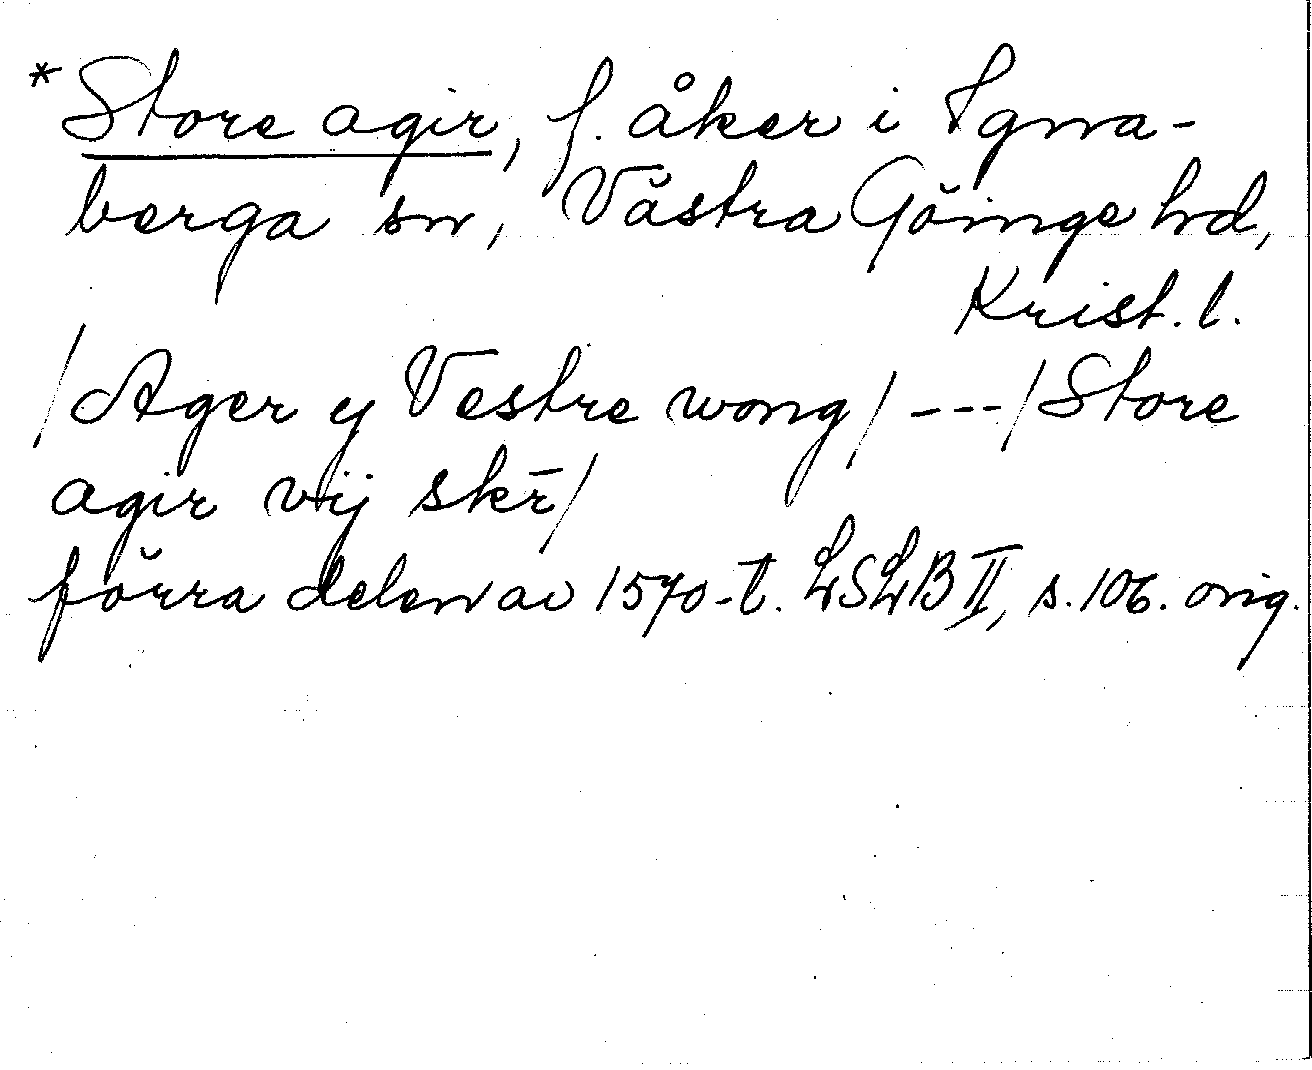 * Store agir, f. åker i Igna-
berga sn, Västra Göinge hd,
Krist. l.
/Ager y Vestre wong/ --- /Store
agir vij skr̄/
förra delen av 1570-t. LSLB II, s. 106. orig.